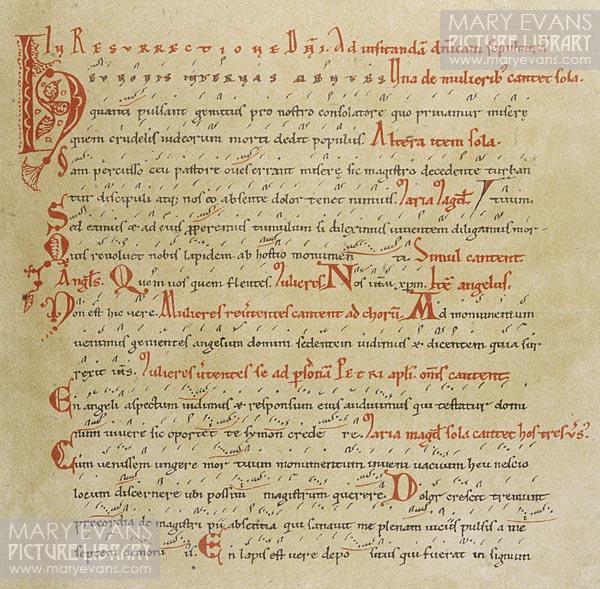 MARY EVANS
PICTURE LIBRARY
www.maryevans.com
In Resurrectione Dñi. Ad visitandā dñicam sepulturā
Heu nobis internas mentes Una de mulierib' cantet sola.
quanti pulsant gemitus pro nostro consolatore quo privamur misere
quem crudelis iudeorum morti dedit populus. Altera item sola.
Iam percusso ceu pastore oves errant misere sic magistro decedente turban
tur discipuli atq; nos eo absente dolor tenet nimius. Maria Magd'
Sed eamus & ad eius properemus tumulum si dileximus viventem diligamus mor
Quis revolvet nobis lapidem ab hostio monumen ti. Simul cantent
Angl's. Quem vos quem flentes. Mulieres Nos ihm xpm. Itē angelus.
Non est hic vere. Mulieres revertentes cantent ad chorū. Ad monumentum
venimus gementes angelum domini sedentem vidimus & dicentem quia sur
rexit ihs. Mulieres vertentes se ad psonam PETRI apli. oms cantent
En angeli aspectum vidimus & responsum eius audivimus qui testatur domi
num vivere sic oportet te symon crede re. Maria magd' sola cantet hos tres v's.
Cum venissem ungere mor tuum monumentum inveni vacuum heu nescio
locum discernere ubi possim magistrum querere. Dolor crescit tremunt
precordia de magistri pii absentia qui sanavit me plenam viciis pulsis a me
septem demoni is. En lapis est vere depo situs qui fuerat in signum
MARY EVANS
PICTURE LIBRARY
www.maryevans.com
MARY EVANS
PICTURE LIBRARY
www.maryevans.com